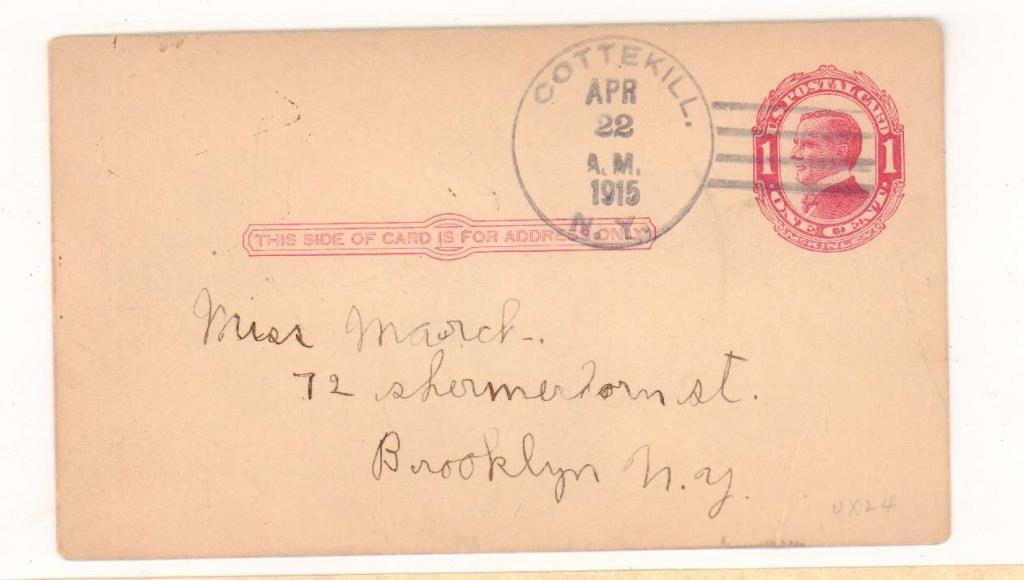 COTTEKILL.
APR
22
A.M.
1915
N.Y.
U.S. POSTAL CARD
1 1
ONE CENT
McKINLEY
THIS SIDE OF CARD IS FOR ADDRESS ONLY
Miss March.
72 shermerdorn st.
Brooklyn N.Y.
UX24